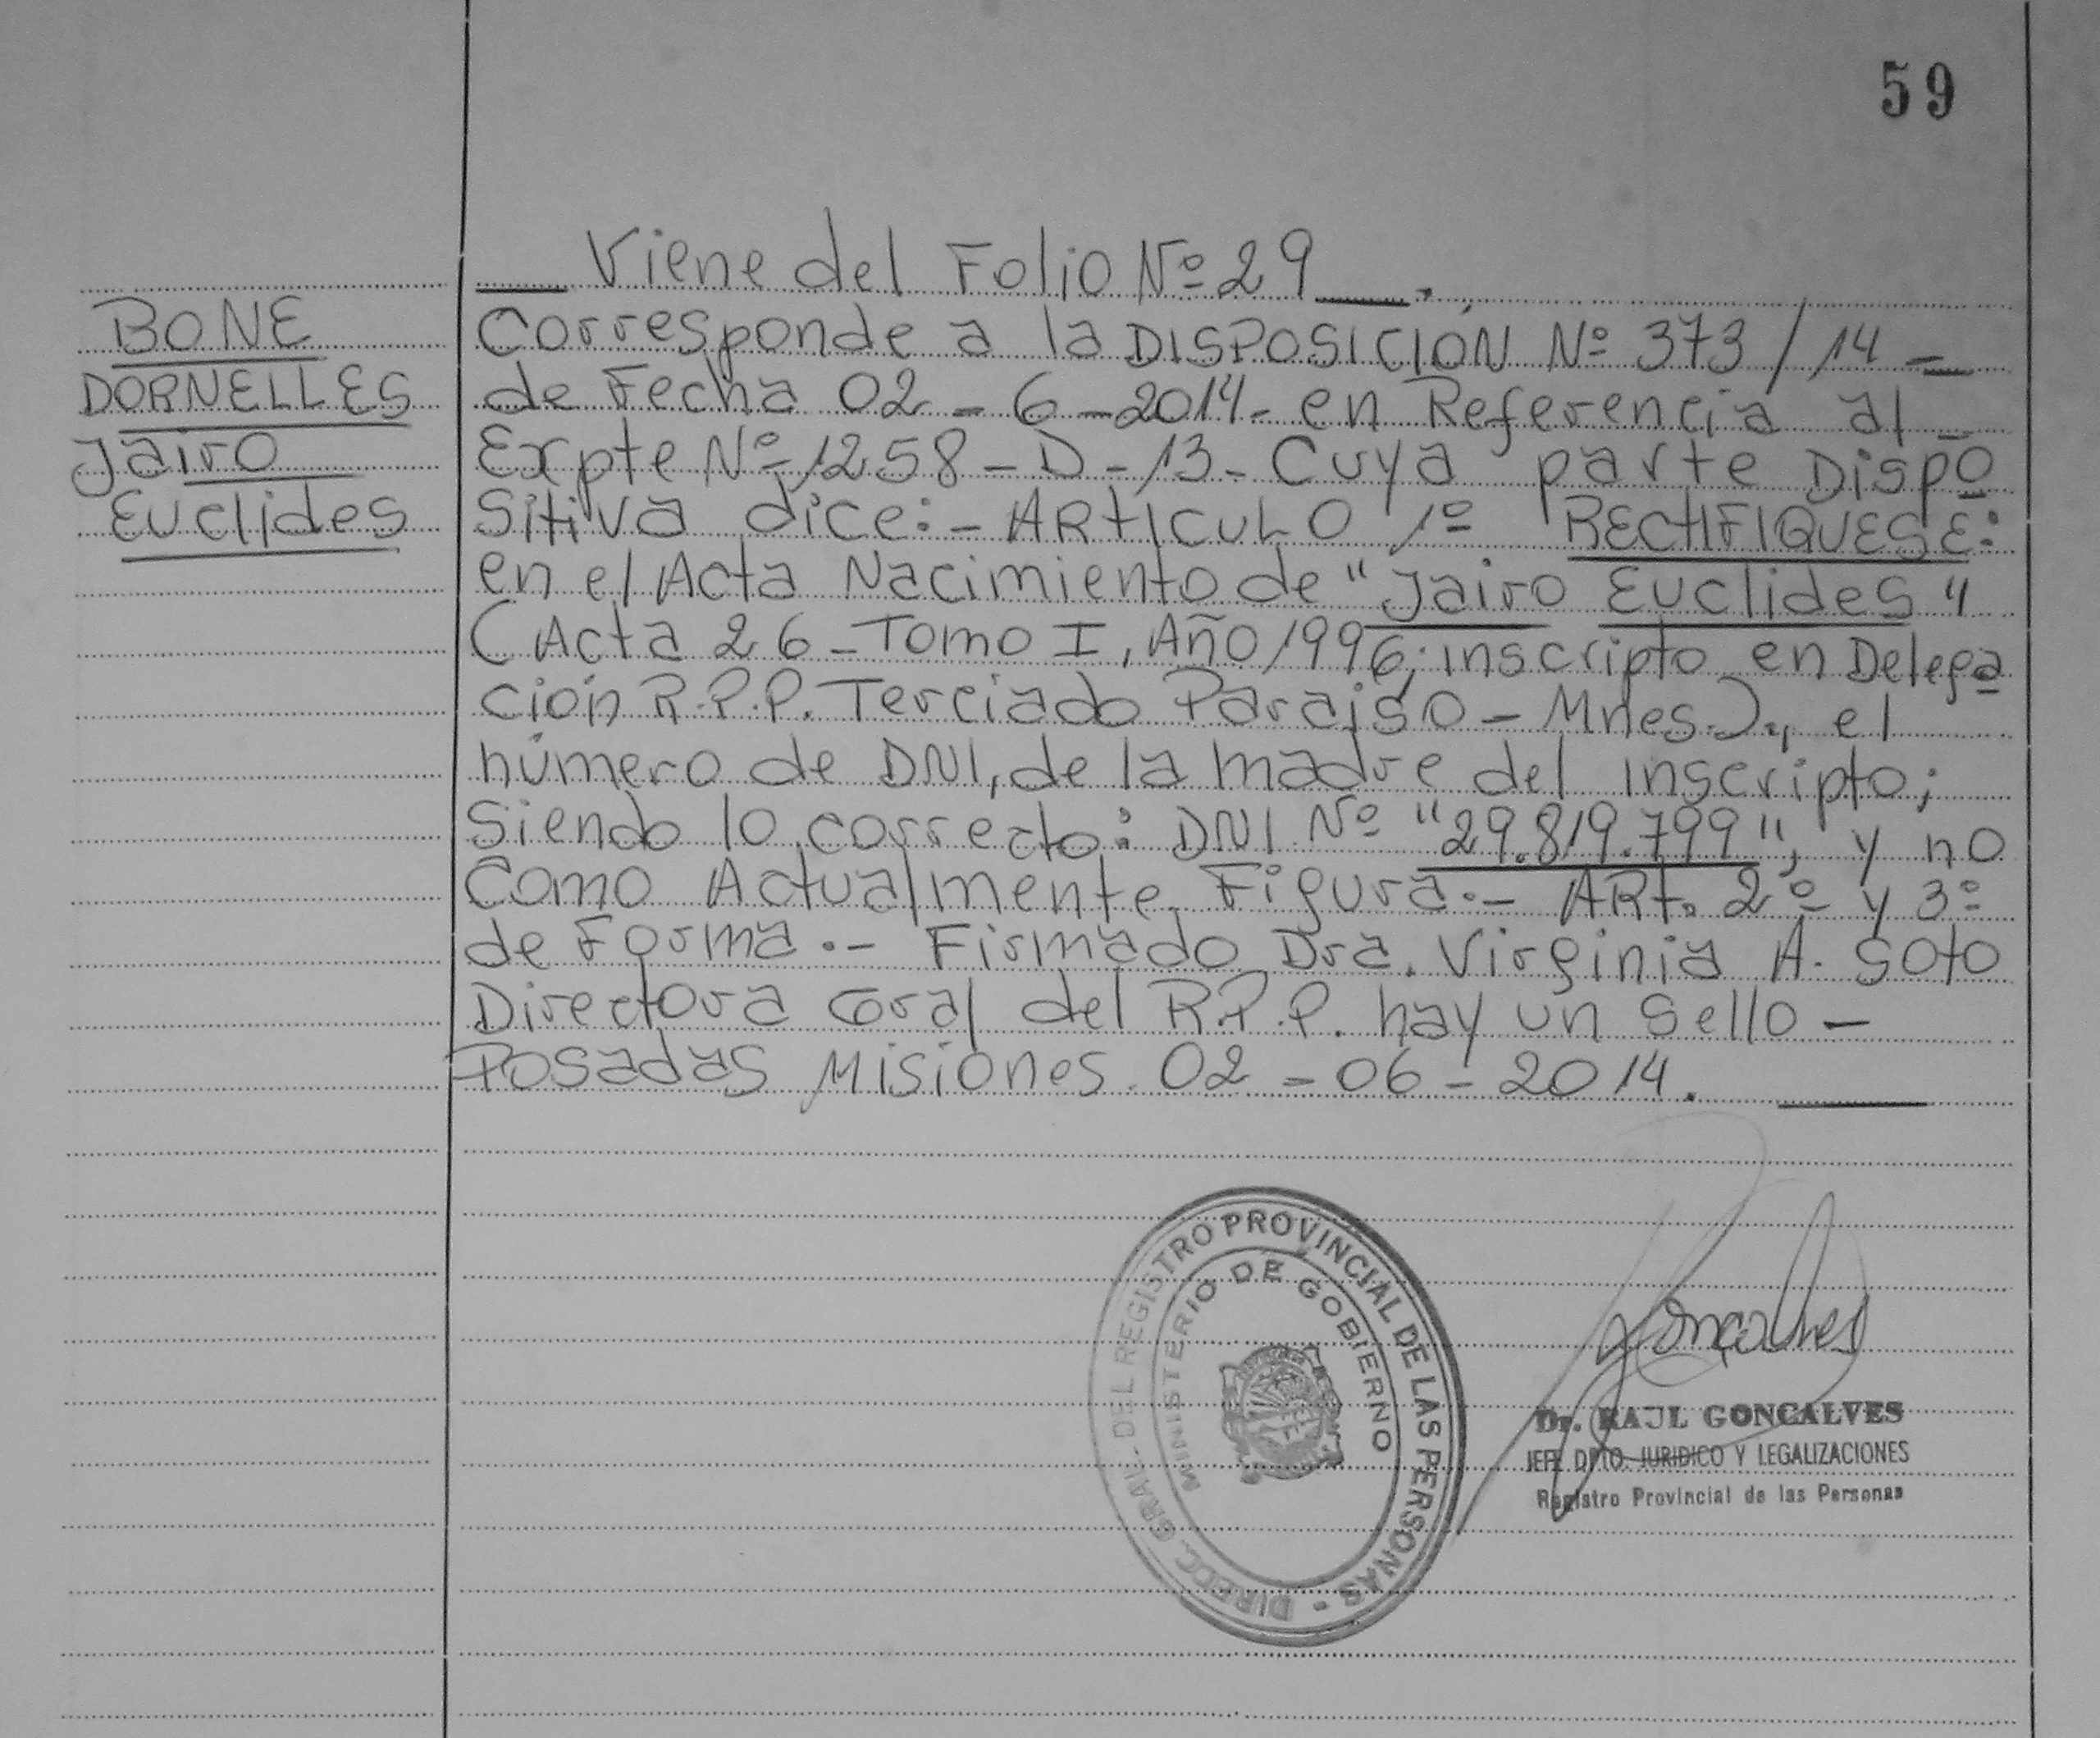 59
Viene del Folio Nº 29 .
BONE
DORNELLES
Jairo
Euclides
Corresponde a la DISPOSICIÓN Nº 373/14 -
de Fecha 02-6-2014- en Referencia al
Expte Nº 1258-D-13- Cuya parte Dispo
sitiva dice:- ARTICULO 1º RECTIFIQUESE:
en el Acta Nacimiento de "Jairo Euclides"
(Acta 26-Tomo I, Año 1996; inscripto en Delega
ción R.P.P. Terciado Paraiso - Mnes.)., el
número de DNI, de la madre del inscripto;
Siendo lo correcto: DNI Nº "29.819.799", y no
Como Actualmente Figura.- ARt. 2º y 3º
de Forma.- Firmado Dra. Virginia A. Soto
Directora Gral del R.P.P. hay un Sello -
Posadas Misiones. 02-06-2014.
DIRECC. GRAL. DEL REGISTRO PROVINCIAL DE LAS PERSONAS -
MINISTERIO DE GOBIERNO
Goncalves
Dr. RAUL GONCALVES
JEFE DPTO. JURIDICO Y LEGALIZACIONES
Registro Provincial de las Personas